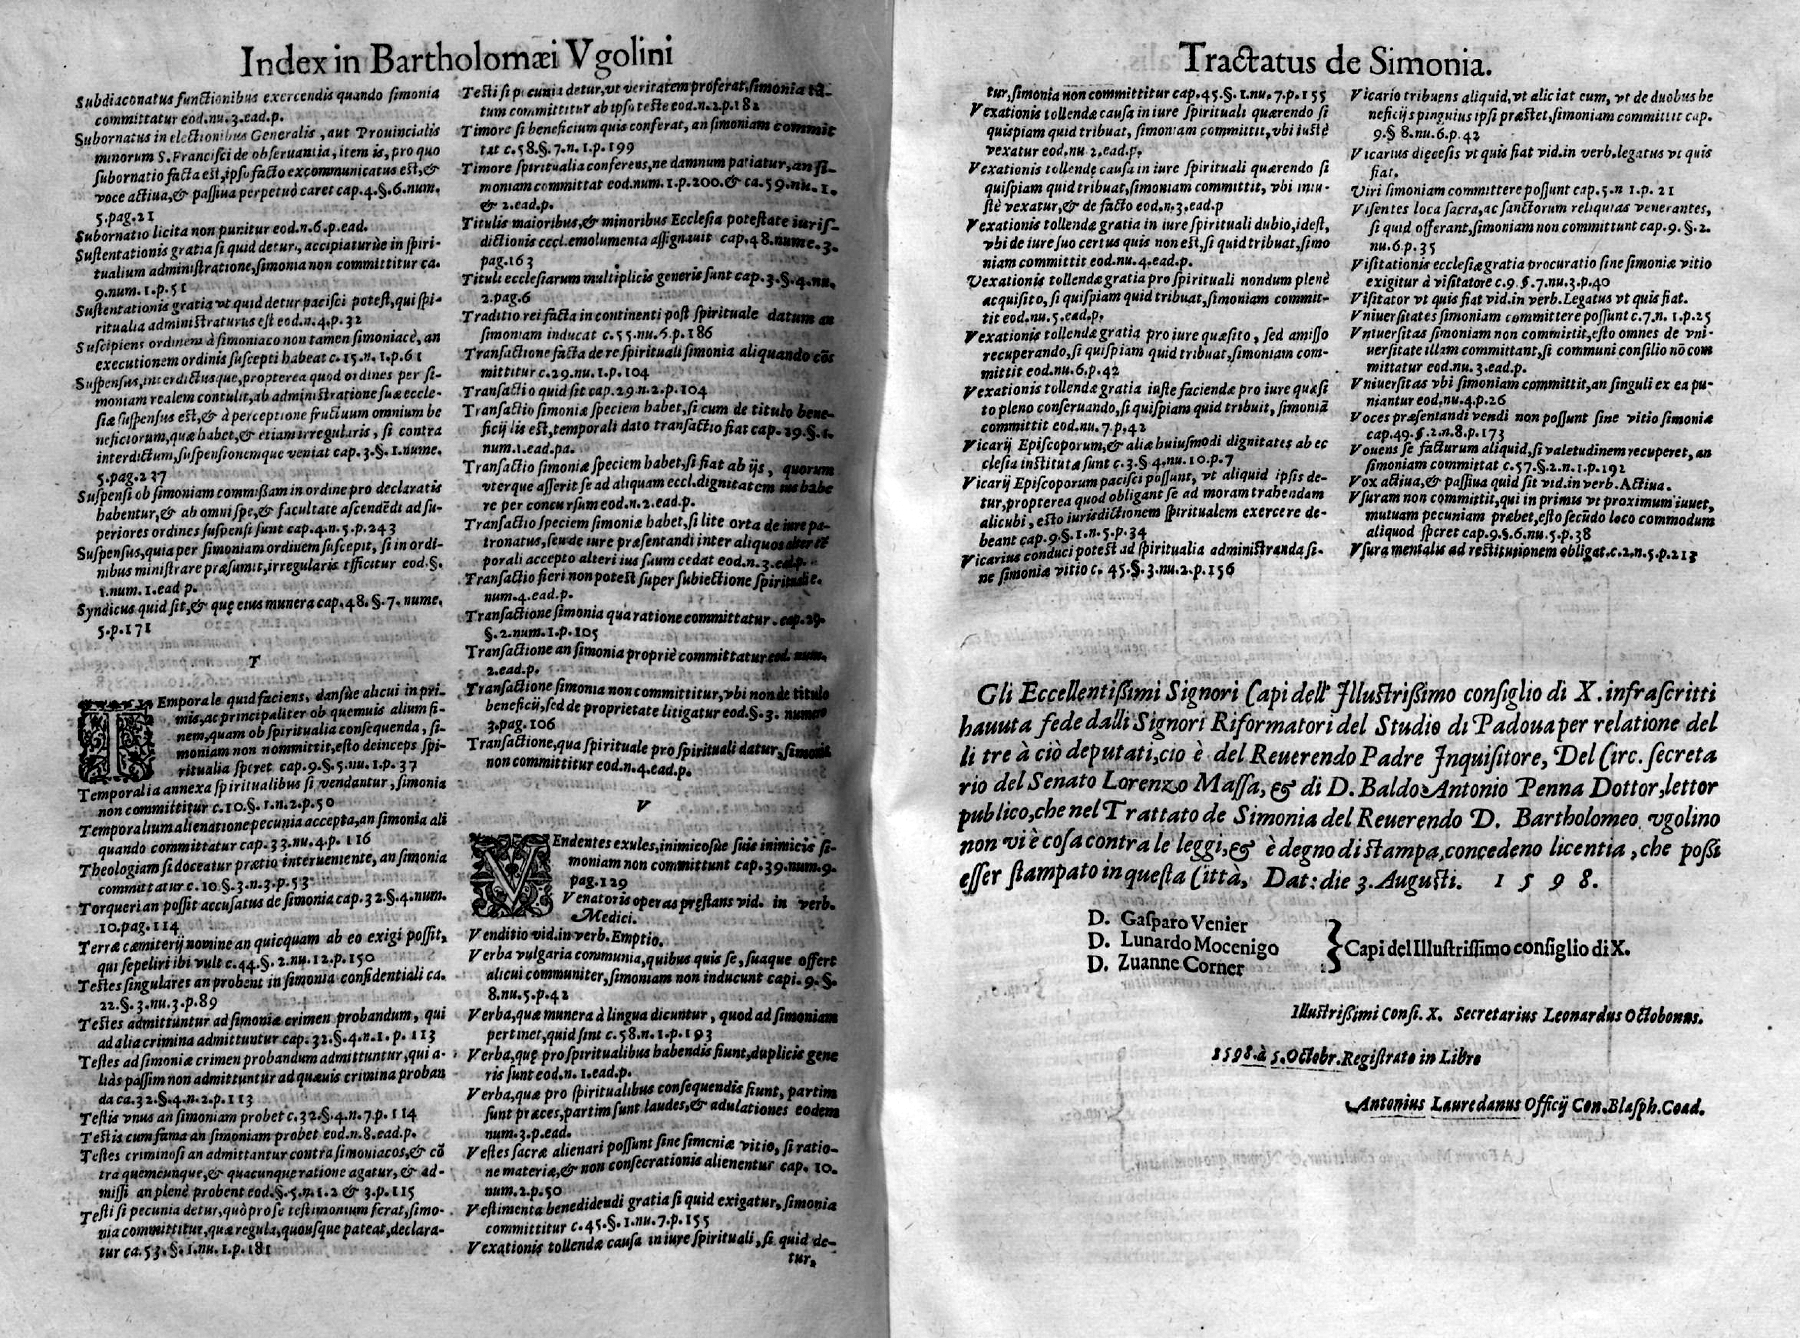 Index in Bartholomæi Vgolini
Subdiaconatus functionibus exercendis quando simonia
committatur eod.nu.3.ead.p.
Subornatus in electionibus Generalis, aut Prouincialis
minorum S.Francisci de obseruantia, item is, pro quo
subornatio facta est, ipso facto excommunicatus est, &
voce actiua, & passiua perpetuò caret cap.4.§.6.num.
5.pag.21
Subornatio licita non punitur eod.n.6.p.ead.
Sustentationis gratia si quid detur, accipiaturùe in spiri-
tualium administratione, simonia non committitur ca.
9.num.1.p.51
Sustentationis gratia vt quid detur pacisci potest, qui spi-
ritualia administraturus est eod.n.4.p.32
Suscipiens ordinem à simoniaco non tamen simoniacè, an
executionem ordinis suscepti habeat c.15.n.1.p.61
Suspensus, interdictusque, propterea quod ordines per si-
moniam realem contulit, ab administratione suæ eccle-
siæ suspensus est, & à perceptione fructuum omnium be
neficiorum, quæ habet, & etiam irregularis, si contra
interdictum, suspensionemque veniat cap.3.§.1.nume.
5.pag.237
Suspensi ob simoniam commissam in ordine pro declaratis
habentur, & ab omni spe, & facultate ascendēdi ad su-
periores ordines suspensi sunt cap.4.n.5.p.243
Suspensus, quia per simoniam ordinem suscepit, si in ordi-
nibus ministrare præsumit, irregularis efficitur eod.§.
1.num.1.ead p.
Syndicus quid sit, & quę eius munera cap.48.§.7.nume.
5.p.171
T
TEmporale quid faciens, dansùe alicui in pri-
mis, ac principaliter ob quemuis alium fi-
nem, quam ob spiritualia consequenda, si-
moniam non nommittit, esto deinceps spi-
ritualia speret cap.9.§.5.nu.1.p.37
Temporalia annexa spiritualibus si vendantur, simonia
non committitur c.10.§.1.n.2.p.50
Temporalium alienatione pecunia accepta, an simonia ali
quando committatur cap.33.nu.4.p.116
Theologiam si doceatur prætio interueniente, an simonia
committatur c.10.§.3.n.3.p.53
Torqueri an possit accusatus de simonia cap.32.§.4.num.
10.pag.114
Terræ cæmiterij nomine an quicquam ab eo exigi possit,
qui sepeliri ibi vult c.44.§.2.nu.12.p.150
Testes singulares an probent in simonia confidentiali ca.
22.§.3.nu.3.p.89
Testes admittuntur ad simoniæ crimen probandum, qui
ad alia crimina admittuntur cap.32.§.4.n.1.p.113
Testes ad simoniæ crimen probandum admittuntur, qui a-
liàs passim non admittuntur ad quæuis crimina proban
da ca.32.§.4.n.2.p.113
Testis vnus an simoniam probet c.32.§.4.n.7.p.114
Testis cum fama an simoniam probet eod.n.8.ead.p.
Testes criminosi an admittantur contra simoniacos, & cō
tra quemcunque, & quacunque ratione agatur, & ad-
missi an plenè probent eod.§.5.n.1.2 & 3.p.115
Testi si pecunia detur, quò pro se testimonium ferat, simo-
nia committitur, quæ regula, quousque pateat, declara-
tur ca.53.§.1.nu.1.p.181
Testi si pecunia detur, vt veritatem proferat, simonia tā-
tum committitur ab ipso teste eod.n.2.p.182
Timore si beneficium quis conferat, an simoniam commit
tat c.58.§.7.n.1.p.199
Timore spiritualia conferens, ne damnum patiatur, an si-
moniam committat eod.num.1.p.200.& ca.59.nu.1.
& 2.ead.p.
Titulis maioribus, & minoribus Ecclesia potestate iuris-
dictionis eccl.emolumenta assignauit cap.48.nume.3.
pag.163
Tituli ecclesiarum multiplicis generis sunt cap.3.§.4.nu.
2.pag.6
Traditio rei facta in continenti post spirituale datum an
simoniam inducat c.55.nu.6.p.186
Transactione facta de re spirituali simonia aliquando cōs
mittitur c.29.nu.1.p.104
Transactio quid sit cap.29.n.2.p.104
Transactio simoniæ speciem habet, si cum de titulo bene-
ficij lis est, temporali dato transactio fiat cap.29.§.1.
num.1.ead.pa.
Transactio simoniæ speciem habet, si fiat ab ijs, quorum
vterque asserit se ad aliquam eccl.dignitatem ius habe
re per concursum eod.n.2.ead.p.
Transactio speciem simoniæ habet, si lite orta de iure pa-
tronatus, seu de iure præsentandi inter aliquos alter tē
porali accepto alteri ius suum cedat eod.n.3.ead.p.
Transactio fieri non potest super subiectione spirituale.
num.4.ead.p.
Transactione simonia qua ratione committatur. cap.29.
§.2.num.1.p.105
Transactione an simonia propriè committatur eod.num.
2.ead.p.
Transactione simonia non committitur, vbi non de titulo
beneficij, sed de proprietate litigatur eod.§.3. numero
3.pag.106
Transactione, qua spirituale pro spirituali datur, simonia
non committitur eod.n.4.ead.p.
V
VEndentes exules, inimicosùe suis inimicis si-
moniam non committunt cap.39.num.9.
pag.129
Venatoris operas pręstans vid. in verb.
Medici.
Venditio vid.in verb.Emptio.
Verba vulgaria communia, quibus quis se, suaque offert
alicui communiter, simoniam non inducunt capi.9.§.
8.nu.5.p.42
Verba, quæ munera à lingua dicuntur, quod ad simoniam
pertinet, quid sint c.58.n.1.p.193
Verba, quę pro spiritualibus habendis fiunt, duplicis gene
ris sunt eod.n.1.ead.p.
Verba, quæ pro spiritualibus consequendis fiunt, partim
sunt præces, partim sunt laudes, & adulationes eodem
num.3.p.ead.
Vestes sacræ alienari possunt sine simoniæ vitio, si ratio-
ne materiæ, & non consecrationis alienentur cap.10.
num.2.p.50
Vestimenta benedidendi gratia si quid exigatur, simonia
committitur c.45.§.1.nu.7.p.155
Vexationis tollendæ causa in iure spirituali, si quid de-
tur,
Tractatus de Simonia.
tur, simonia non committitur cap.45.§.1.nu.7.p.155
Vexationis tollendæ causa in iure spirituali quærendo si
quispiam quid tribuat, simoniam committit, vbi iustè
vexatur eod.nu 2.ead.p.
Vexationis tollendę causa in iure spirituali quærendo si
quispiam quid tribuat, simoniam committit, vbi iniu-
stè vexatur, & de facto eod.n.3.ead.p
Vexationis tollendæ gratia in iure spirituali dubio, idest,
vbi de iure suo certus quis non est, si quid tribuat, simo
niam committit eod.nu.4.ead.p.
Vexationis tollendæ gratia pro spirituali nondum plenè
acquisito, si quispiam quid tribuat, simoniam commit-
tit eod.nu.5.ead.p.
Vexationis tollendæ gratia pro iure quæsito, sed amisso
recuperando, si quispiam quid tribuat, simoniam com-
mittit eod.nu.6.p.42
Vexationis tollendæ gratia iuste faciendæ pro iure quæsi
to pleno conseruando, si quispiam quid tribuit, simoniā
committit eod.nu.7.p.42
Vicarij Episcoporum, & aliæ huiusmodi dignitates ab ec
clesia institutæ sunt c.3.§ 4.nu.10.p.7
Vicarij Episcoporum pacisci possunt, vt aliquid ipsis de-
tur, propterea quod obligant se ad moram trahendam
alicubi, esto iurisdictionem spiritualem exercere de-
beant cap.9.§.1.n.5.p.34
Vicarius conduci potest ad spiritualia administranda si-
ne simoniæ vitio c.45.§.3.nu.2.p.156
Vicario tribuens aliquid, vt aliciat eum, vt de duobus be
neficijs pinguius ipsi præstet, simoniam committit cap.
9.§ 8.nu.6.p.42
Vicarius dięcesis vt quis fiat vid.in verb.legatus vt quis
fiat.
Viri simoniam committere possunt cap.5.n 1.p.21
Visentes loca sacra, ac sanctorum reliquias venerantes,
si quid offerant, simoniam non committunt cap.9.§.2.
nu.6.p.35
Visitationis ecclesiæ gratia procuratio sine simoniæ vitio
exigitur à visitatore c.9.§.7.nu.3.p.40
Visitator vt quis fiat vid.in verb.Legatus vt quis fiat.
Vniuersitates simoniam committere possunt c.7.n.1.p.25
Vniuersitas simoniam non committit, esto omnes de vni-
uersitate illam committant, si communi consilio nō com
mittatur eod.nu.3.ead.p.
Vniuersitas vbi simoniam committit, an singuli ex ea pu-
niantur eod.nu.4.p.26
Voces præsentandi vendi non possunt sine vitio simoniæ
cap.49.§.2.n.8.p.173
Vouens se facturum aliquid, si valetudinem recuperet, an
simoniam committat c.57.§.2.n.1.p.192
Vox actiua, & passiua quid sit vid.in verb.Actiua.
Vsuram non committit, qui in primis vt proximum iuuet,
mutuam pecuniam præbet, esto secūdo loco commodum
aliquod speret cap.9.§.6.nu.5.p.38
Vsura mentalis ad restitutionem obligat.c.2.n.5.p.213
Gli Eccellentissimi Signori Capi dell' Illustrissimo consiglio di X. infrascritti
hauuta fede dalli Signori Riformatori del Studio di Padoua per relatione del
li tre à ciò deputati, cio è del Reuerendo Padre Inquisitore, Del Circ. secreta
rio del Senato Lorenzo Massa, & di D. Baldo Antonio Penna Dottor, lettor
publico, che nel Trattato de Simonia del Reuerendo D. Bartholomeo vgolino
non vi è cosa contra le leggi, & è degno di stampa, concedeno licentia, che possi
esser stampato in questa Città, Dat: die 3. Augusti. 1598.
D. Gasparo Venier
D. Lunardo Mocenigo
D. Zuanne Corner
} Capi del Illustrissimo consiglio di X.
Illustrissimi Consi. X. Secretarius Leonardus Octobonus.
1598. à 5. Octobr. Registrato in Libro
Antonius Lauredanus Officij Con. Blasph. Coad.